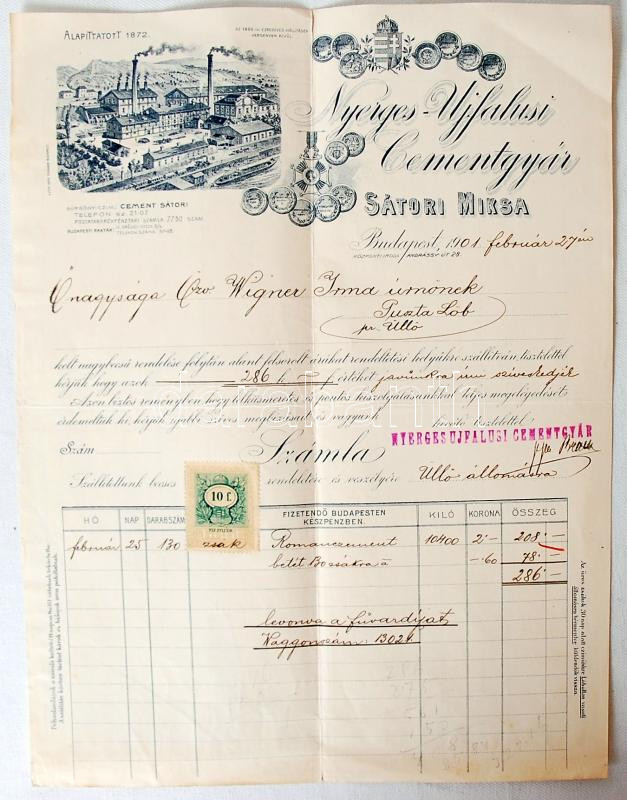 ALAPÍTTATOTT 1872.
Nyerges-Ujfalusi
Cementgyár
SÁTORI MIKSA
SÜRGÖNYCZIM: CEMENT SÁTORI
TELEFON SZ. 21-07
POSTATAKARÉKPÉNZTÁRI SZÁMLA 7750 SZÁM.
Budapest, 1901 február 27én
KÖZPONTI IRODA: ANDRÁSSY-ÚT 28.
Őnagysága Özv. Wigner Irma úrnőnek
Puszta Lob
pr. Üllő
kelt nagybecsű rendelése folytán alant felsorolt árúkat rendeltetési helyükre szállítván tisztelettel
kérjük hogy azok 286 k értékét javunkra írni szíveskedjék
Azon biztos reményben hogy lelkiismeretes és pontos kiszolgálásunkkal teljes megelégedését
érdemeltük ki, kérjük ujabb szíves megbízásait és vagyunk
tisztelettel
NYERGESUJFALUSI CEMENTGYÁR
Szám
Számla
Szállítottunk becses rendeletére és veszélyére Üllő állomásra
10 f.
HÓ NAP DARABSZÁM FIZETENDŐ BUDAPESTEN KÉSZPÉNZBEN. KILÓ KORONA ÖSSZEG
február 25 130 zsák Romanczement 10400 2.- 208.-
betét Bozsákra á -.60 78.-
286.-
levonva a fuvardíjat,
Waggonszám 13024